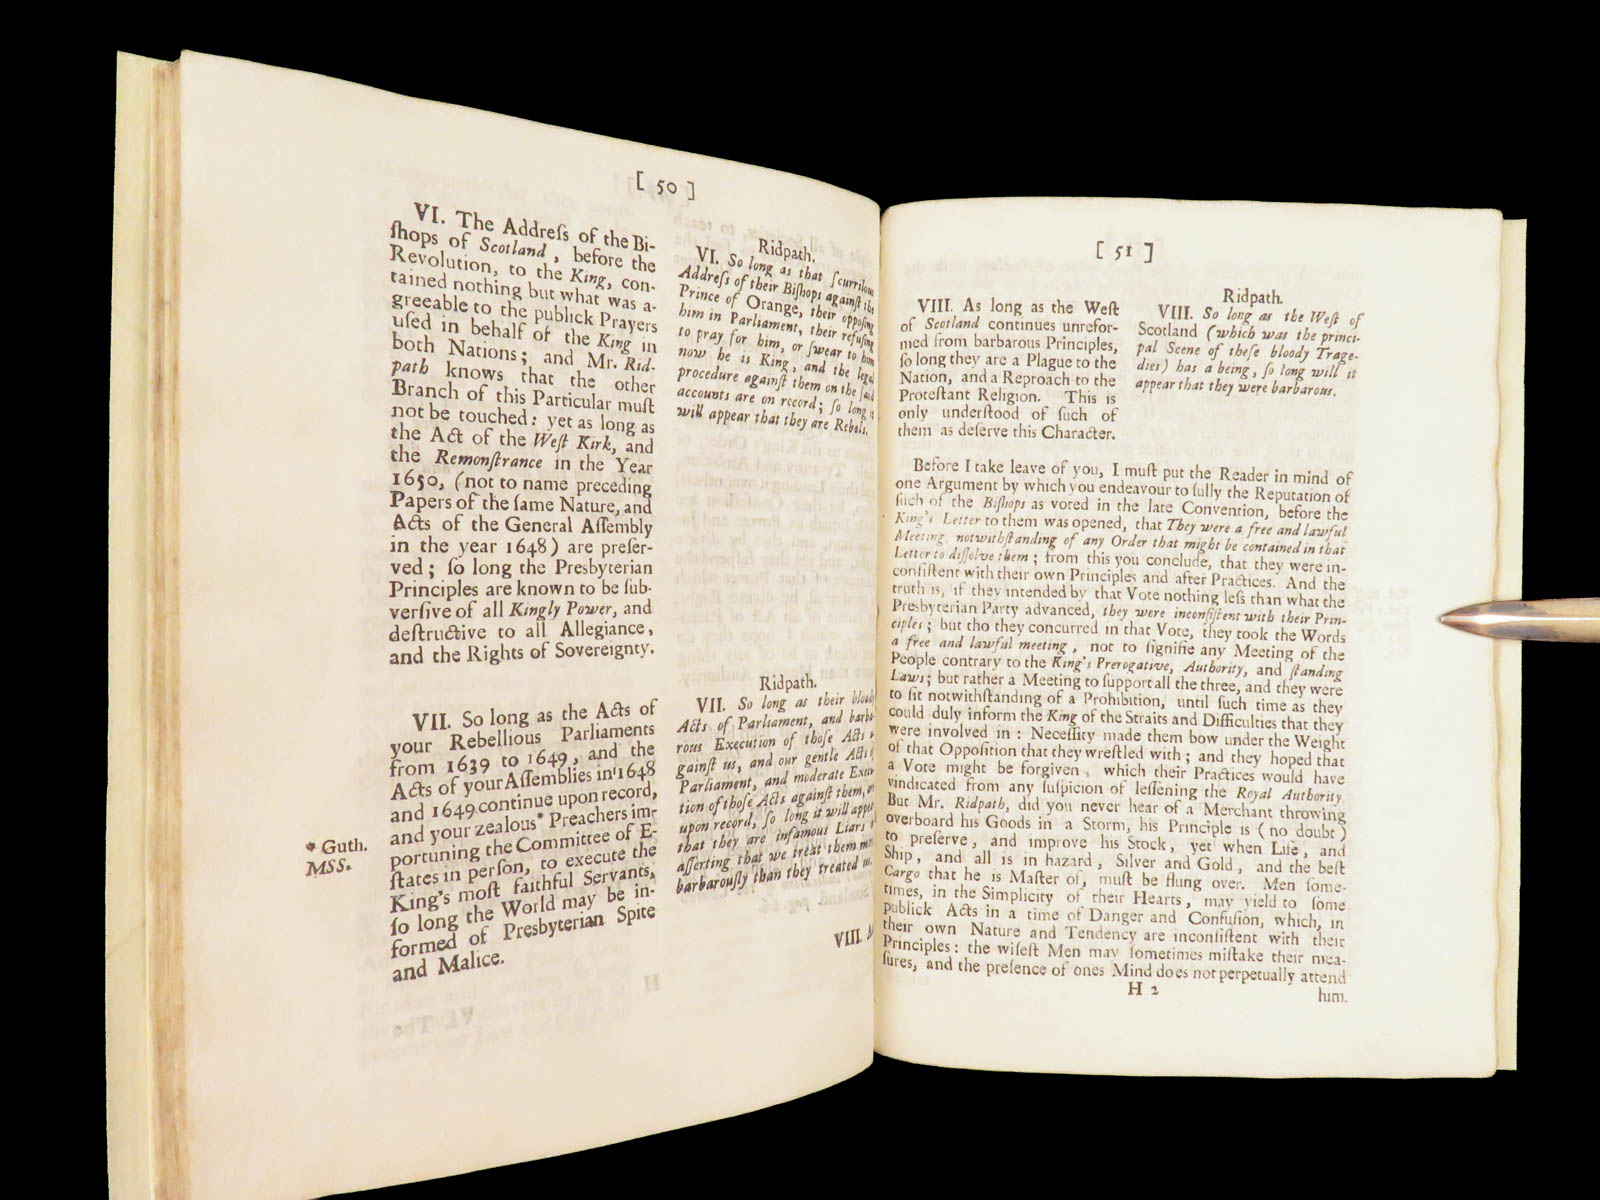 [ 50 ]
VI. The Addreſs of the Bi-
ſhops of Scotland, before the
Revolution, to the King, con-
tained nothing but what was a-
greeable to the publick Prayers
uſed in behalf of the King in
both Nations; and Mr. Rid-
path knows that the other
Branch of this Particular muſt
not be touched: yet as long as
the Act of the Weſt Kirk, and
the Remonſtrance in the Year
1650, (not to name preceding
Papers of the ſame Nature, and
Acts of the General Aſſembly
in the year 1648) are preſer-
ved; ſo long the Presbyterian
Principles are known to be ſub-
verſive of all Kingly Power, and
deſtructive to all Allegiance,
and the Rights of Sovereignty.
Ridpath.
VI. So long as that ſcurrilous
Addreſs of their Biſhops againſt the
Prince of Orange, their oppoſing
him in Parliament, their refuſing
to pray for him, or ſwear to him
now he is King, and the legal
procedure againſt them on the ſaid
accounts are on record; ſo long it
will appear that they are Rebels.
VII. So long as the Acts of
your Rebellious Parliaments
from 1639 to 1649, and the
Acts of your Aſſemblies in 1648
and 1649 continue upon record,
and your zealous* Preachers im-
portuning the Committee of E-
ſtates in perſon, to execute the
King's moſt faithful Servants,
ſo long the World may be in-
formed of Presbyterian Spite
and Malice.
* Guth.
MSS.
Ridpath.
VII. So long as their bloody
Acts of Parliament, and barba-
rous Execution of thoſe Acts a-
gainſt us, and our gentle Acts of
Parliament, and moderate Execu-
tion of thoſe Acts againſt them, are
upon record, ſo long it will appear
that they are infamous Liars in
aſſerting that we treat them more
barbarouſly than they treated us.
VIII. As
[ 51 ]
VIII. As long as the Weſt
of Scotland continues unrefor-
med from barbarous Principles,
ſo long they are a Plague to the
Nation, and a Reproach to the
Proteſtant Religion. This is
only underſtood of ſuch of
them as deſerve this Character.
Ridpath.
VIII. So long as the Weſt of
Scotland (which was the princi-
pal Scene of theſe bloody Trage-
dies) has a being, ſo long will it
appear that they were barbarous.
Before I take leave of you, I muſt put the Reader in mind of
one Argument by which you endeavour to ſully the Reputation of
ſuch of the Biſhops as voted in the late Convention, before the
King's Letter to them was opened, that They were a free and lawful
Meeting, notwithſtanding of any Order that might be contained in that
Letter to diſſolve them; from this you conclude, that they were in-
conſiſtent with their own Principles and after Practices. And the
truth is, if they intended by that Vote nothing leſs than what the
Presbyterian Party advanced, they were inconſiſtent with their Prin-
ciples; but tho they concurred in that Vote, they took the Words
a free and lawful meeting, not to ſignifie any Meeting of the
People contrary to the King's Prerogative, Authority, and ſtanding
Laws; but rather a Meeting to ſupport all the three, and they were
to ſit notwithſtanding of a Prohibition, until ſuch time as they
could duly inform the King of the Straits and Difficulties that they
were involved in: Neceſſity made them bow under the Weight
of that Oppoſition that they wreſtled with; and they hoped that
a Vote might be forgiven, which their Practices would have
vindicated from any ſuſpicion of leſſening the Royal Authority.
But Mr. Ridpath, did you never hear of a Merchant throwing
overboard his Goods in a Storm, his Principle is (no doubt)
to preſerve, and improve his Stock, yet when Life, and
Ship, and all is in hazard, Silver and Gold, and the beſt
Cargo that he is Maſter of, muſt be flung over. Men ſome-
times, in the Simplicity of their Hearts, may yield to ſome
publick Acts in a time of Danger and Confuſion, which, in
their own Nature and Tendency are inconſiſtent with their
Principles: the wiſeſt Men may ſometimes miſtake their mea-
ſures, and the preſence of ones Mind does not perpetually attend
H 2
him.